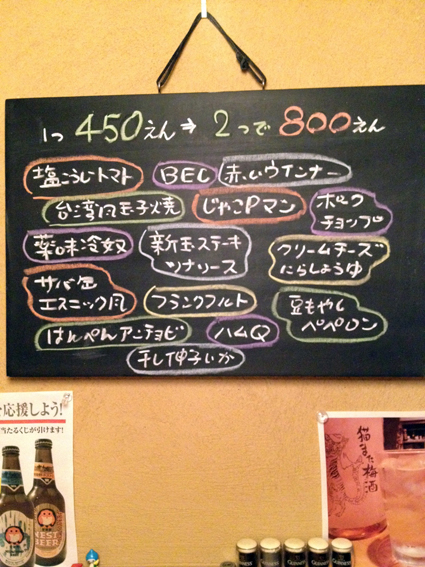 1つ 450えん⇒2つで 800えん
塩こうじトマト
BEC
赤いウインナー
台湾風玉子焼
じゃこPマン
ポーク
チョップ
薬味冷奴
新玉ステーキ
ツナソース
クリームチーズ
にらしょうゆ
サバ缶
エスニック風
フランクフルト
豆もやし
ペペロン
はんぺんアンチョビ
ハムQ
干し伸子いか
を応援しよう!
当たるくじが引けます!
NEST
BEER
猫また梅酒
GUINNESS